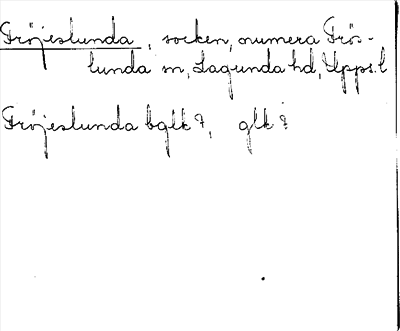 Fröjeslunda, socken, numera Frös-
lunda sn, Lagunda hd, Upps. l
Fröjeslunda bglk?, glk?